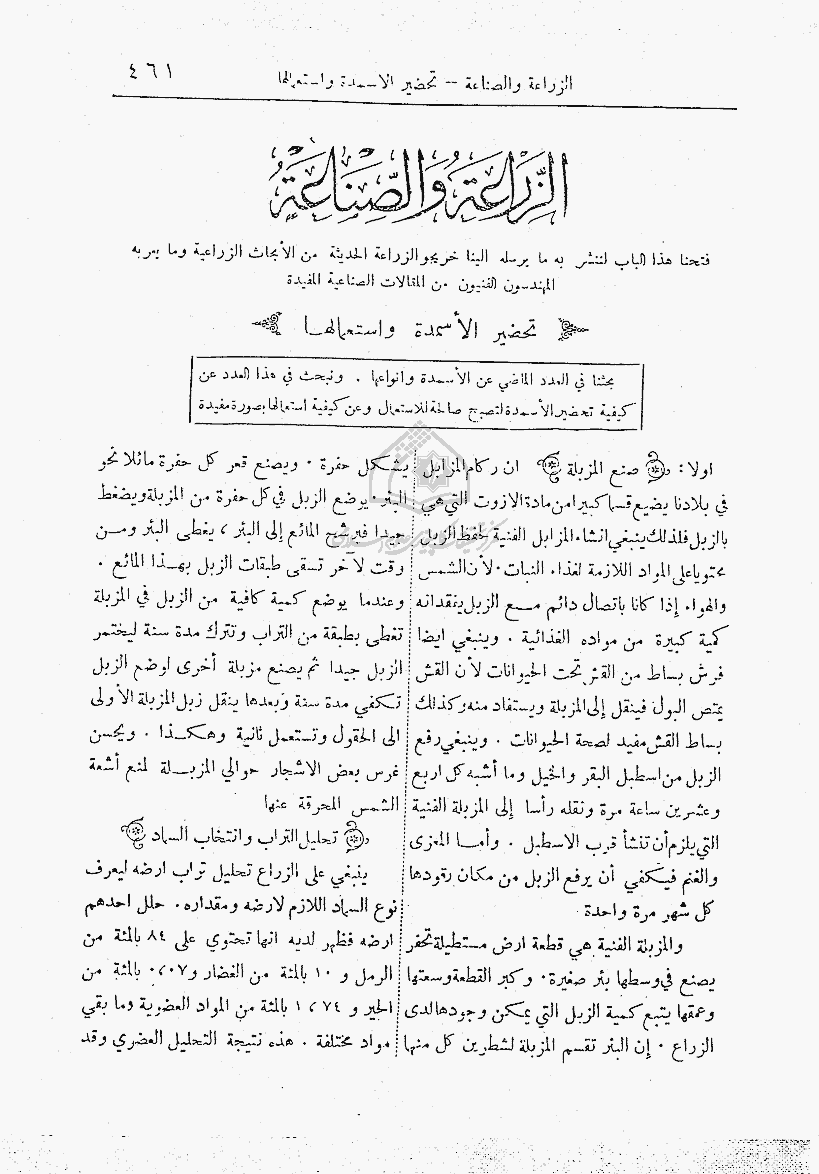 الزراعة والصناعة – تحضير الاسمدة واستعمالها
٤٦١
الزراعة والصناعة
فتحنا هذا الباب لننشر به ما يرسله الينا خريجو الزراعة الحديثة من الأبحاث الزراعية وما يعربه
المهندسون الفنيون من المقالات الصناعية المفيدة
تحضير الأسمدة واستعمالها
بحثنا في العدد الماضي عن الأسمدة وانواعها . ونبحث في هذا العدد عن
كيفية تحضير الأسمدة لتصبح صالحة للاستعمال وعن كيفية استعمالها بصورة مفيدة
اولا : صنع المزبلة ان ركام المزابل
في بلادنا يضيع قسما كبيرا من مادة الازوت التي هي
بالزبل فلذلك ينبغي انشاء المزابل الفنية لحفظ الزبل
محتويا على المواد اللازمة لغذاء النبات . لأن الشمس
والهواء إذا كانا باتصال دائم مع الزبل يفقدانه
كمية كبيرة من مواده الغذائية . وينبغي ايضا
فرش بساط من القش تحت الحيوانات لأن القش
يمتص البول فينقل إلى المزبلة ويستفاد منه وكذلك
بساط القش مفيد لصحة الحيوانات . وينبغي رفع
الزبل من اسطبل البقر والخيل وما أشبه كل اربع
وعشرين ساعة مرة ونقله رأسا إلى المزبلة الفنية
التي يلزم أن تنشأ قرب الاسطبل . وأما المعزى
والغنم فيكفي أن يرفع الزبل من مكان رقودها
كل شهر مرة واحدة
والمزبلة الفنية هي قطعة ارض مستطيلة تحفر
يصنع في وسطها بئر صغيرة . وكبر القطعة وسعتها
وعمقها يتبع كمية الزبل التي يمكن وجودها لدى
الزراع . إن البئر تقسم المزبلة لشطرين كل منها
يشكل حفرة . ويصنع قعر كل حفرة مائلا نحو
البئر . يوضع الزبل في كل حفرة من المزبلة ويضغط
جيدا فيرشح المائع إلى البئر ، يغطى البئر ومن
وقت لآخر تسقى طبقات الزبل بهذا المائع .
وعندما يوضع كمية كافية من الزبل في المزبلة
تغطى بطبقة من التراب وتترك مدة سنة ليختمر
الزبل جيدا ثم يصنع مزبلة أخرى لوضع الزبل
تكفي مدة سنة وبعدها ينقل زبل المزبلة الأولى
الى الحقول وتستعمل ثانية وهكذا . ويحسن
غرس بعض الاشجار حوالي المزبلة لمنع أشعة
الشمس المحرقة عنها
تحليل التراب وانتخاب السماد
ينبغي على الزراع تحليل تراب ارضه ليعرف
نوع السماد اللازم لارضه ومقداره . حلل احدهم
ارضه فظهر لديه انها تحتوي على ٨٤ بالمئة من
الرمل و ١٠ بالمئة من الغضار و ٠،٠٧ بالمئة من
الجير و ١،٧٤ بالمئة من المواد العضوية وما بقي
مواد مختلفة . هذه نتيجة التحليل العضري وقد